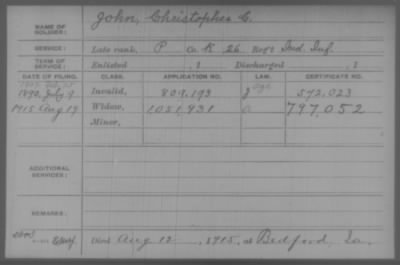 NAME OF SOLDIER: John, Christopher C.
SERVICE: Late rank, P Co. K 26 Reg't Ind. Inf.
TERM OF SERVICE: Enlisted , 1 Discharged , 1
DATE OF FILING. CLASS. APPLICATION NO. LAW. CERTIFICATE NO.
1890, July 9 Invalid, 809,193 572,023
1915 Aug 19 Widow, 1051,931 797,052
Minor,
ADDITIONAL SERVICES:
REMARKS:
Died Aug 12, 1915, at Bedford, Ia.